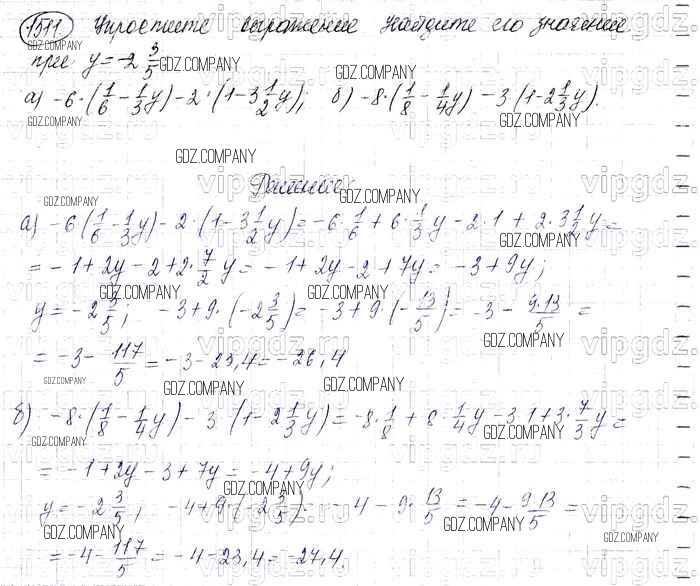 1511 Упростите выражение найдите его значение
при y = -2 3/5
а) -6·(1/6 - 1/3y) - 2·(1 - 3 1/2y); б) -8·(1/8 - 1/4y) - 3(1 - 2 1/3y).
Решение:
а) -6(1/6 - 1/3y) - 2·(1 - 3 1/2y) = -6·1/6 + 6·1/3y - 2·1 + 2·3 1/2y =
= -1 + 2y - 2 + 2·7/2y = -1 + 2y - 2 + 7y = -3 + 9y;
y = -2 3/5; -3 + 9·(-2 3/5) = -3 + 9·(-13/5) = -3 - 9·13/5 =
= -3 - 117/5 = -3 - 23,4 = -26,4
б) -8·(1/8 - 1/4y) - 3(1 - 2 1/3y) = -8·1/8 + 8·1/4y - 3·1 + 3·7/3y =
= -1 + 2y - 3 + 7y = -4 + 9y;
y = -2 3/5; -4 + 9·(-2 3/5) = -4 - 9·13/5 = -4 - 9·13/5 =
= -4 - 117/5 = -4 - 23,4 = -27,4.
GDZ.COMPANY
vipgdz.ru